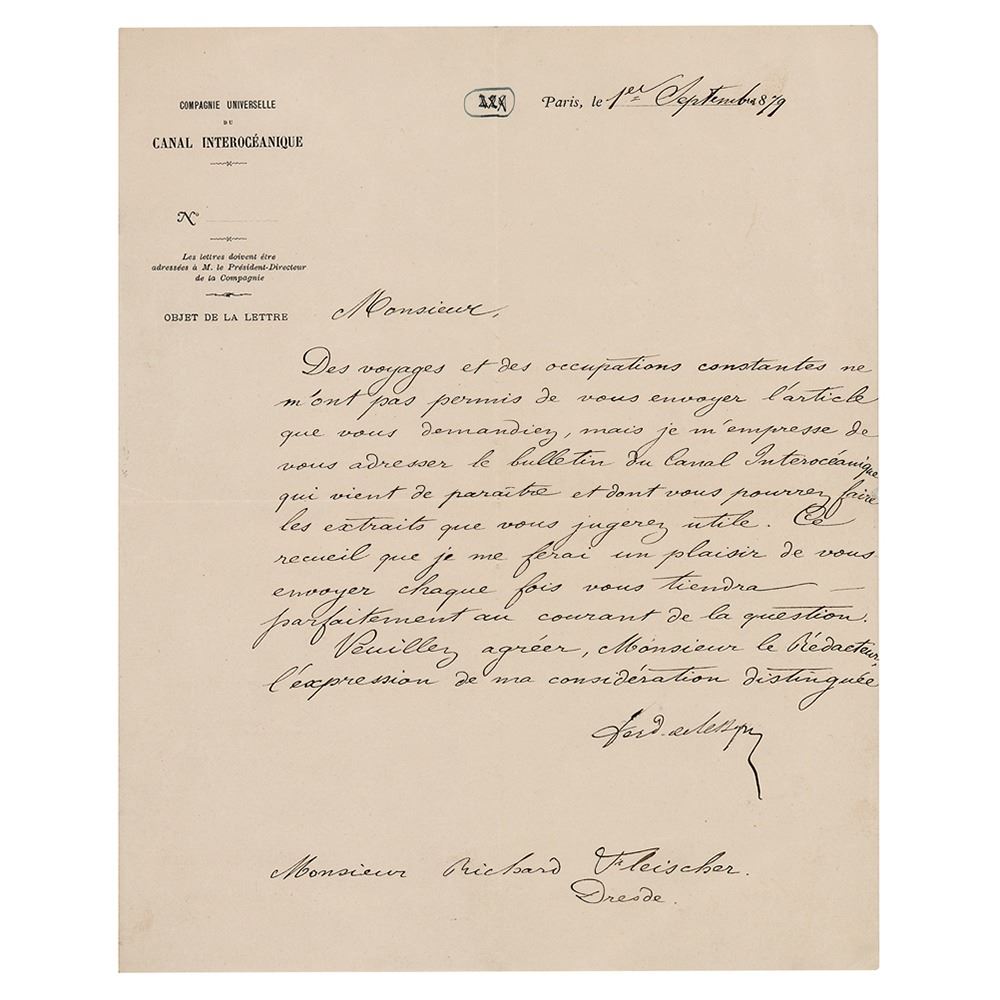 COMPAGNIE UNIVERSELLE
DU
CANAL INTEROCÉANIQUE
Nº
Les lettres doivent être
adressées à M. le Président-Directeur
de la Compagnie
OBJET DE LA LETTRE
Paris, le 1er Septembre 1879
Monsieur,
Des voyages et des occupations constantes ne
m'ont pas permis de vous envoyer l'article
que vous demandiez, mais je m'empresse de
vous adresser le bulletin du Canal Interocéanique
qui vient de paraître et dont vous pourrez faire
les extraits que vous jugerez utile. Ce
recueil que je me ferai un plaisir de vous
envoyer chaque fois vous tiendra —
parfaitement au courant de la question.
Veuillez agréer, Monsieur le Rédacteur,
l'expression de ma considération distinguée
Ferd. de Lesseps
Monsieur Richard Fleischer.
Dresde.